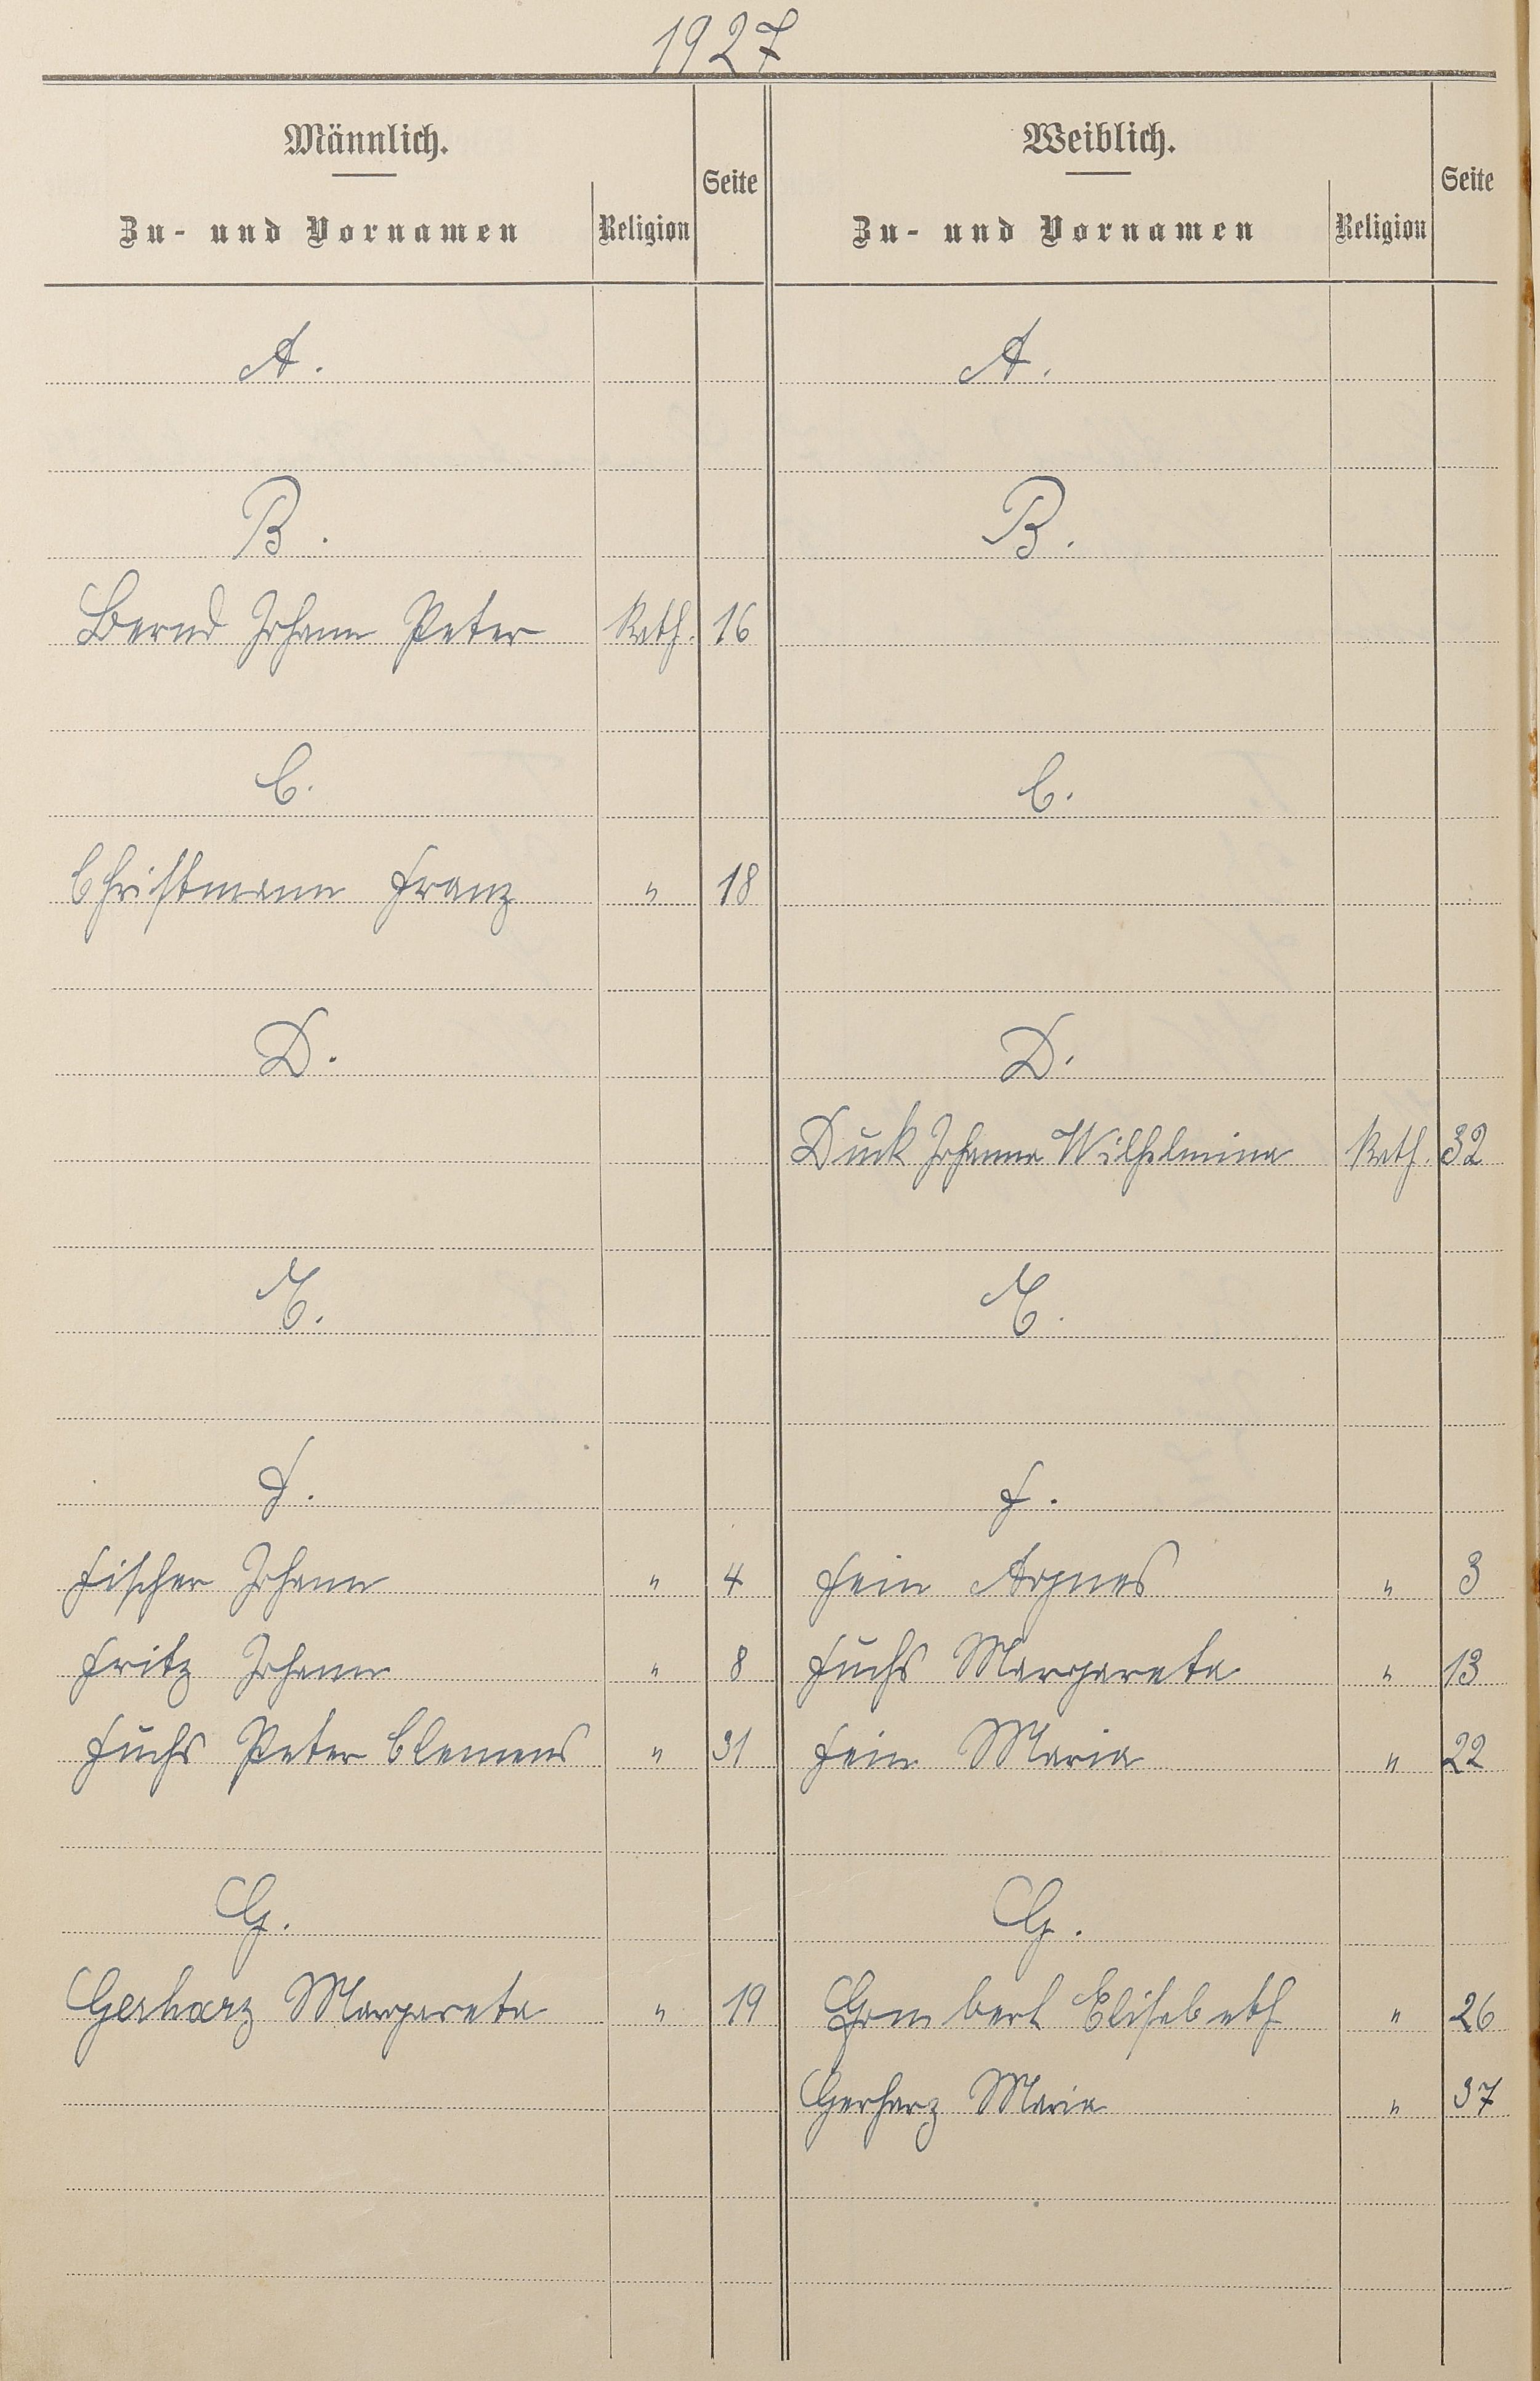 1927
Männlich.
Zu- und Vornamen Religion Seite
A.
B.
Bernd Johann Peter Kath. 16
C.
Christmann Franz " 18
D.
E.
F.
Fischer Johann " 4
Fritz Johann " 8
Fuchs Peter Clemens " 31
G.
Gerharz Margareta " 19
Weiblich.
Zu- und Vornamen Religion Seite
A.
B.
C.
D.
Duck Johanna Wilhelmina Kath. 32
E.
F.
Fein Agnes " 3
Fuchs Margareta " 13
Fein Maria " 22
G.
Gombert Elisabeth " 26
Gerharz Maria " 37